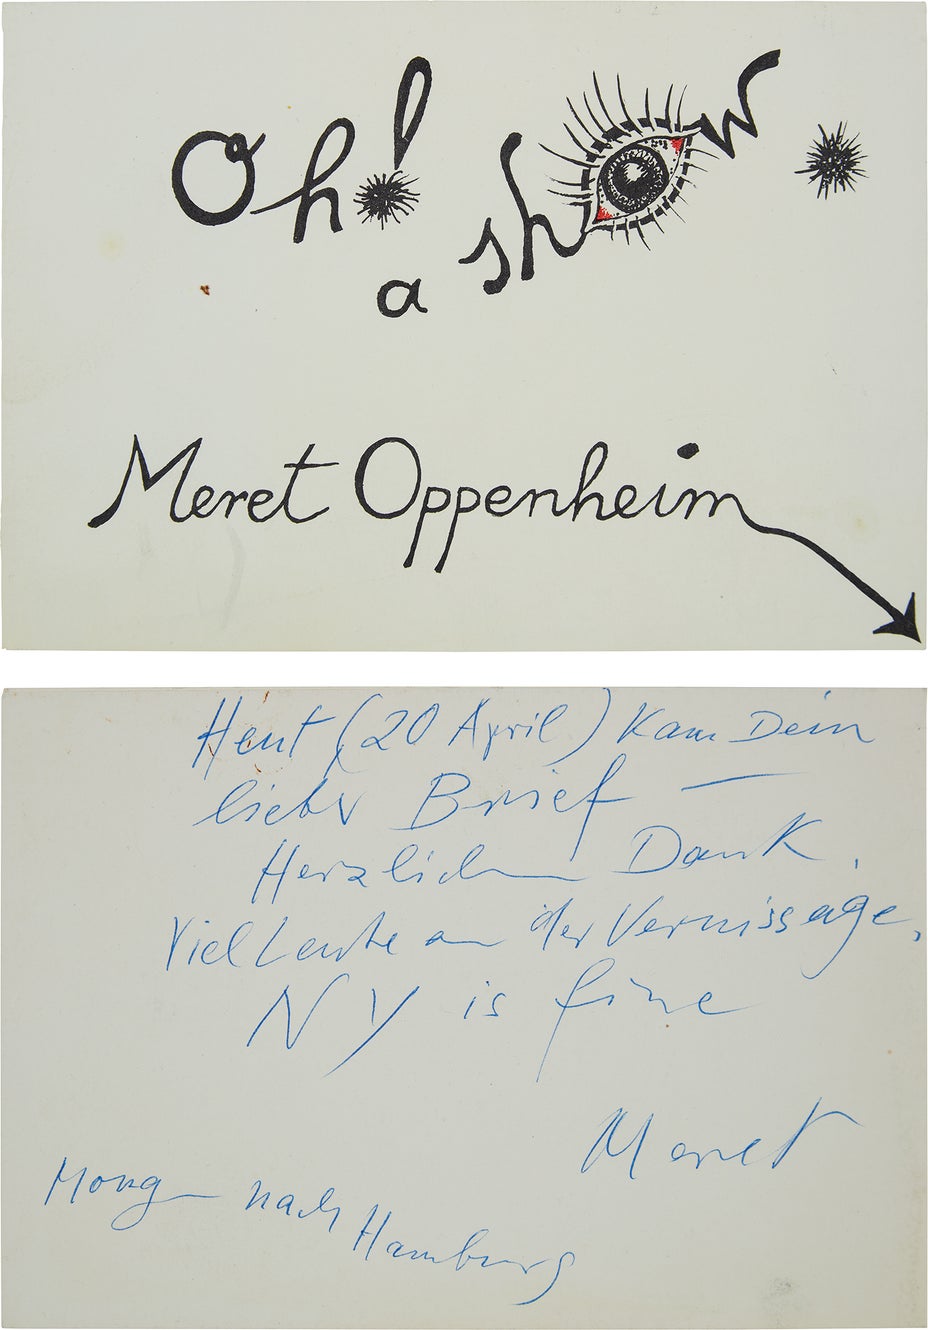 Oh!
a show
Meret Oppenheim
Heut (20 April) kam Dein
lieber Brief —
Herzlichen Dank.
Viel Leute an der Vernissage,
NY is fine
Meret
Morgen nach
Hamburg